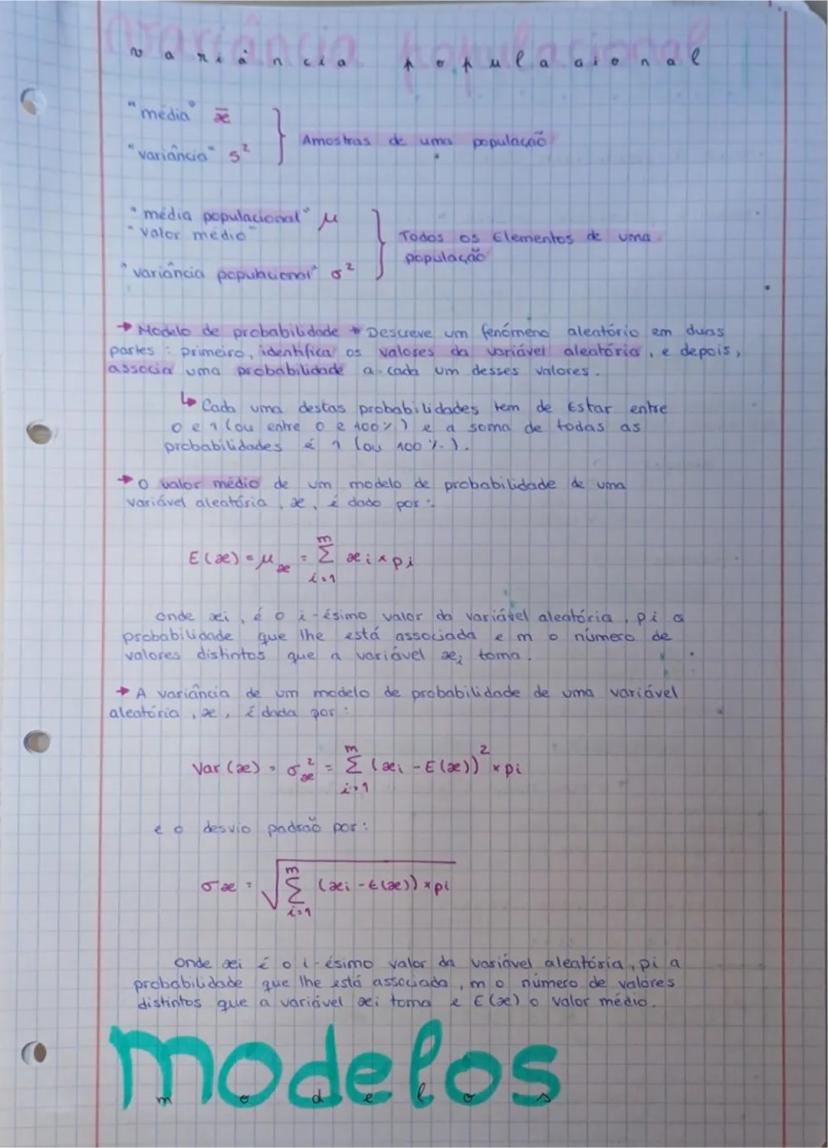 variância populacional
"média" x̄
"variância" s²
} Amostras de uma população
"média populacional" μ
"valor médio"
"variância populacional" σ²
} Todos os Elementos de uma
população
→ Modelo de probabilidade → Descreve um fenómeno aleatório em duas
partes: primeiro, identifica os valores da variável aleatória, e depois,
associa uma probabilidade a cada um desses valores.
↳ Cada uma destas probabilidades tem de Estar entre
0 e 1 (ou entre 0 e 100%) e a soma de todas as
probabilidades é 1 (ou 100%.).
→ O valor médio de um modelo de probabilidade de uma
variável aleatória, x, é dado por:
E(x) = μₓ = Σ_{i=1}^{m} xi × pi
onde xi, é o i-ésimo valor da variável aleatória, pi a
probabilidade que lhe está associada e m o número de
valores distintos que a variável xi toma.
→ A variância de um modelo de probabilidade de uma variável
aleatória, x, é dada por:
Var(x) = σₓ² = Σ_{i=1}^{m} (xi - E(x))² × pi
e o desvio padrão por:
σx = √(Σ_{i=1}^{m} (xi - E(x)) × pi)
Onde xi é o i-ésimo valor da variável aleatória, pi a
probabilidade que lhe está associada, m o número de valores
distintos que a variável xi toma e E(x) o valor médio.
modelos
modelos